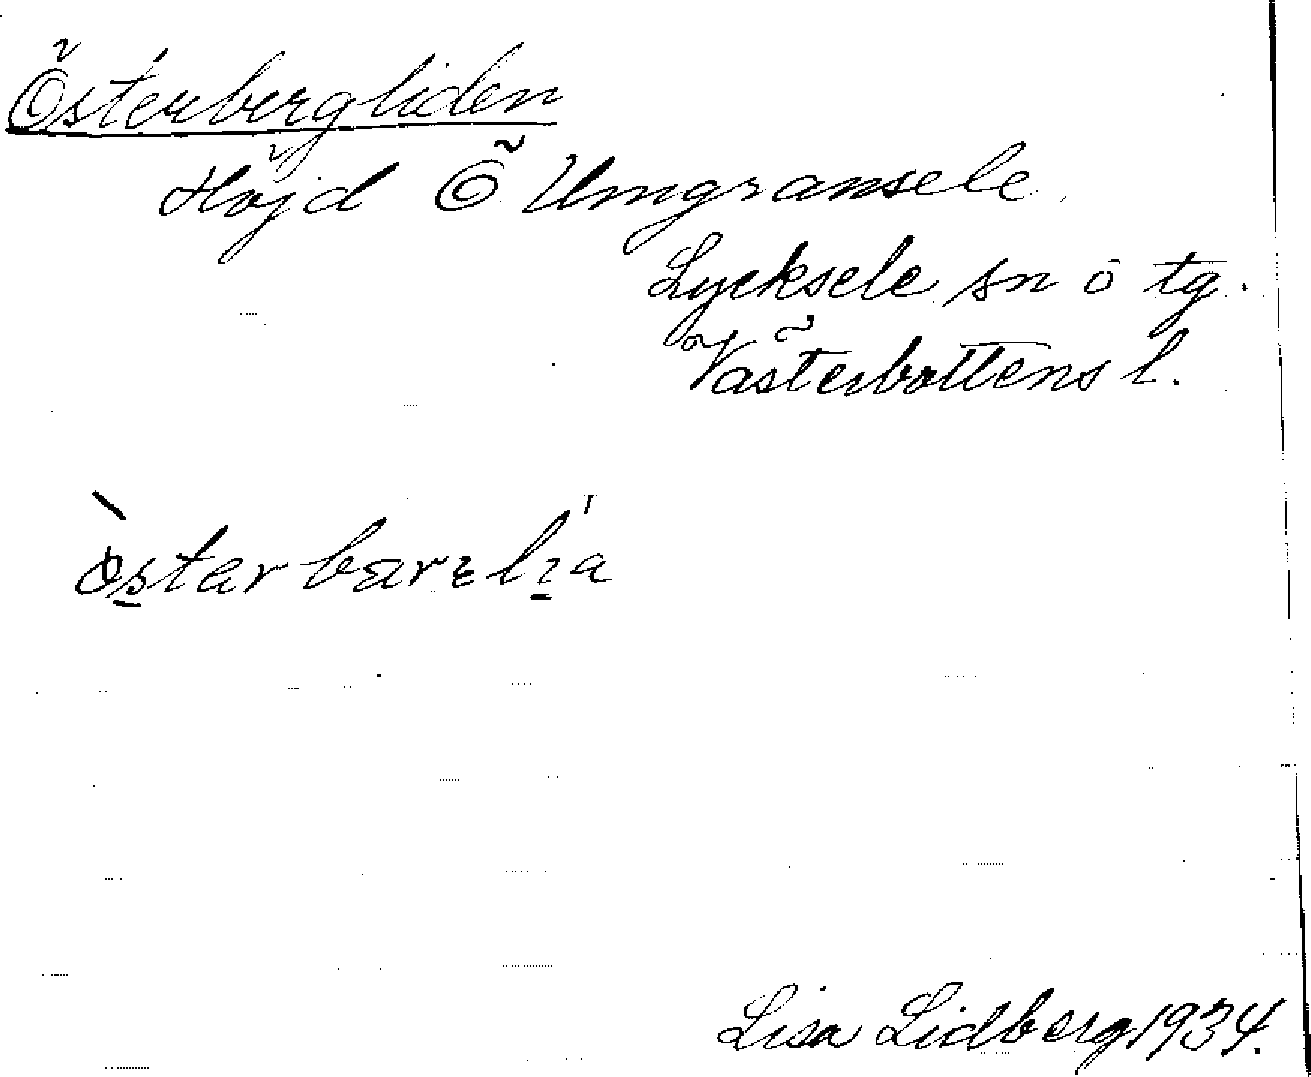 Österbergliden
Höjd Ö Umgransele
Lycksele sn o tg.
Västerbottens l.
Lisa Lidberg 1934.